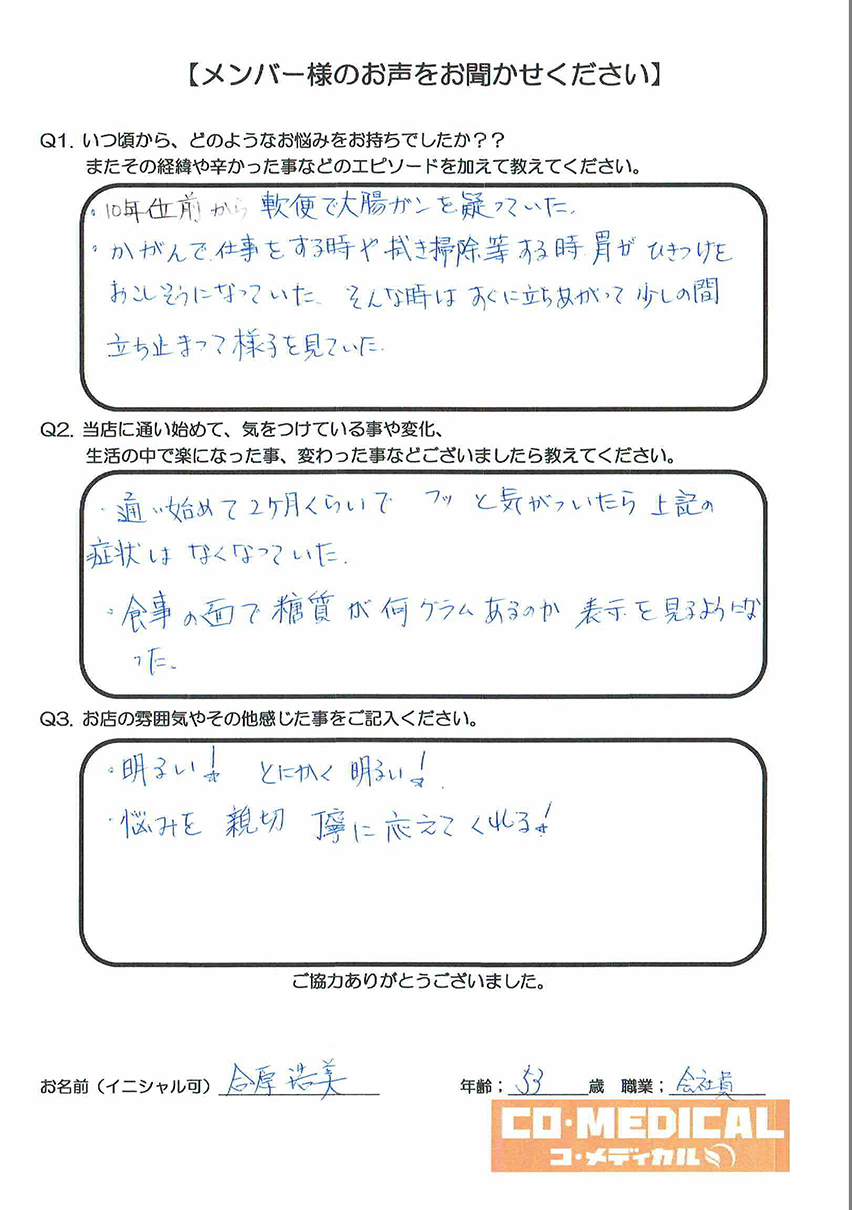 【メンバー様のお声をお聞かせください】
Q1. いつ頃から、どのようなお悩みをお持ちでしたか？？
またその経緯や辛かった事などのエピソードを加えて教えてください。
・10年位前から 軟便で大腸ガンを疑っていた。
・かがんで仕事をする時や拭き掃除等する時胃がひきつけを
おこしそうになっていた。そんな時はすぐに立ちあがって少しの間
立ち止まって様子を見ていた。
Q2. 当店に通い始めて、気をつけている事や変化、
生活の中で楽になった事、変わった事などございましたら教えてください。
・通い始めて2ヶ月くらいで フッ と気がついたら 上記の
症状は なくなっていた。
・食事の面で糖質が何グラムあるのか 表示を見るようにな
った。
Q3. お店の雰囲気やその他感じた事をご記入ください。
・明るい! とにかく 明るい!
・悩みを 親切 寧に 応えてくれる!
ご協力ありがとうございました。
お名前（イニシャル可） 合原 浩美 年齢； 53 歳 職業； 会社員
CO・MEDICAL
コ・メディカル